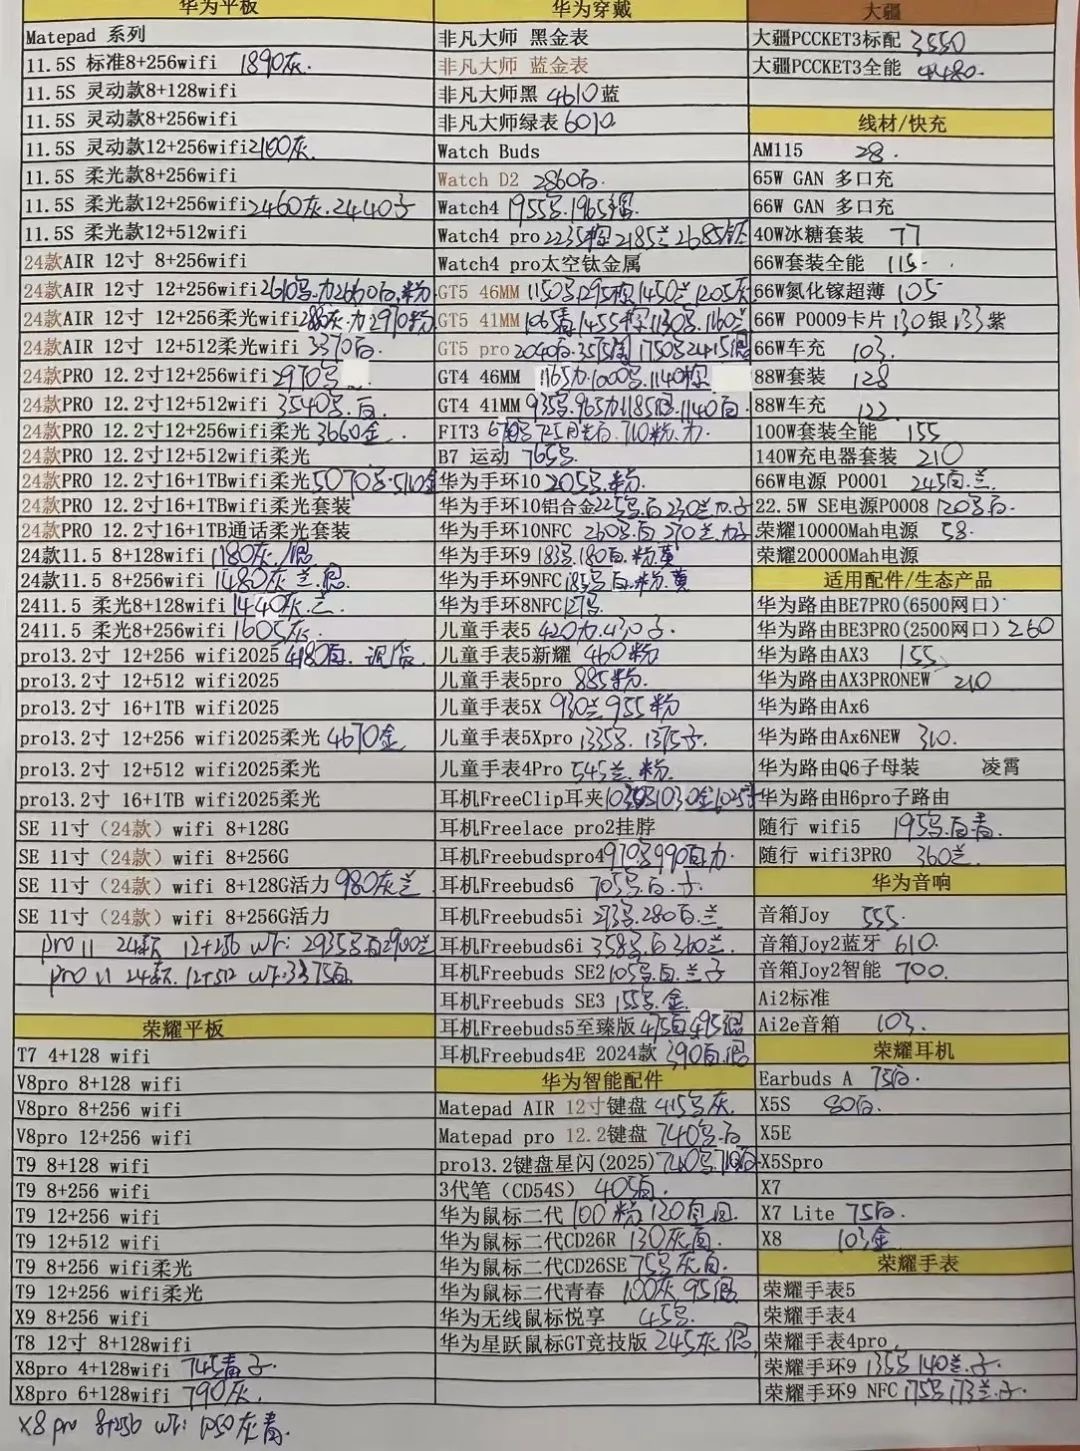 华为平板
Matepad 系列
11.5S 标准8+256wifi 1890灰.
11.5S 灵动款8+128wifi
11.5S 灵动款8+256wifi
11.5S 灵动款12+256wifi 2100灰.
11.5S 柔光款8+256wifi
11.5S 柔光款12+256wifi 2460灰.2440子
11.5S 柔光款12+512wifi
24款AIR 12寸 8+256wifi
24款AIR 12寸 12+256wifi 2610号.力2600白.粉
24款AIR 12寸 12+256柔光wifi 力2970粉
24款AIR 12寸 12+512柔光wifi 3370白.
24款PRO 12.2寸12+256wifi 2970号
24款PRO 12.2寸12+512wifi 3540号.白
24款PRO 12.2寸12+256wifi柔光 3660金
24款PRO 12.2寸12+512wifi柔光
24款PRO 12.2寸16+1TBwifi柔光 5070号.5110金
24款PRO 12.2寸16+1TBwifi柔光套装
24款PRO 12.2寸16+1TB通话柔光套装
24款11.5 8+128wifi 1180灰/
24款11.5 8+256wifi 1480灰.兰.
2411.5 柔光8+128wifi 1440灰.兰.
2411.5 柔光8+256wifi 1605灰.
pro13.2寸 12+256 wifi2025 4180白.
pro13.2寸 12+512 wifi2025
pro13.2寸 16+1TB wifi2025
pro13.2寸 12+256 wifi2025柔光 4670金
pro13.2寸 12+512 wifi2025柔光
pro13.2寸 16+1TB wifi2025柔光
SE 11寸（24款）wifi 8+128G
SE 11寸（24款）wifi 8+256G
SE 11寸（24款）wifi 8+128G活力 980灰兰
SE 11寸（24款）wifi 8+256G活力
pro 11 24款 12+256 wi: 2935号白2900兰
pro 11 24款. 12+512 wi: 3375白
荣耀平板
T7 4+128 wifi
V8pro 8+128 wifi
V8pro 8+256 wifi
V8pro 12+256 wifi
T9 8+128 wifi
T9 8+256 wifi
T9 12+256 wifi
T9 12+512 wifi
T9 8+256 wifi柔光
T9 12+256 wifi柔光
X9 8+256 wifi
T8 12寸 8+128wifi
X8pro 4+128wifi 745青子
X8pro 6+128wifi 790灰.
X8 pro 8+256 wi: 1050灰青.
华为穿戴
非凡大师 黑金表
非凡大师 蓝金表
非凡大师黑 4610蓝
非凡大师绿表 6010
Watch Buds
Watch D2 2860白.
Watch4 1955号.1965
Watch4 pro 2235棕2185兰2685钛
Watch4 pro太空钛金属
GT5 46MM 1150号1295棕1450兰1205灰
GT5 41MM 1065青1455 1130号.1160兰
GT5 pro 2040白.3575 1750号2415
GT4 46MM 1165力.1000号.1140棕
GT4 41MM 935号.965力1185 1140白
FIT3 670号 710粉.力
B7 运动 765号.
华为手环10 205号.粉
华为手环10铝合金225号.白230兰力.子
华为手环10NFC 260号.白 270兰.力子
华为手环9 183号.180白.粉.黄
华为手环9NFC 185号白.粉.黄
华为手环8NFC 127号
儿童手表5 420力.430子.
儿童手表5新耀 460粉
儿童手表5pro 885粉.
儿童手表5X 930兰955粉
儿童手表5Xpro 1335号. 1375子.
儿童手表4Pro 545兰.粉.
耳机FreeClip耳夹 1030金1025
耳机Freelace pro2挂脖
耳机Freebudspro4 970号990白力.
耳机Freebuds6 705号.白.子.
耳机Freebuds5i 273号.280白.兰
耳机Freebuds6i 358号.白360兰.
耳机Freebuds SE2 105号.白.兰子
耳机Freebuds SE3 155号.金.
耳机Freebuds5至臻版 475白495
耳机Freebuds4E 2024款 390白.
华为智能配件
Matepad AIR 12寸键盘 415号灰.
Matepad pro 12.2键盘 740号.白
pro13.2键盘星闪(2025) 740号.710白
3代笔（CD54S） 405白.
华为鼠标二代 100粉 120白
华为鼠标二代CD26R 130灰白.
华为鼠标二代CD26SE 75号灰白.
华为鼠标二代青春 100灰95
华为无线鼠标悦享 45号
华为星跃鼠标GT竞技版 245灰.
大疆
大疆PCCKET3标配 3550
大疆PCCKET3全能 4480.
线材/快充
AM115 28.
65W GAN 多口充
66W GAN 多口充
40W冰糖套装 77
66W套装全能 115.
66W氮化镓超薄 105
66W P0009卡片 130银 133紫
66W车充 103.
88W套装 128
88W车充 122
100W套装全能 155
140W充电器套装 210
66W电源 P0001 245白.兰.
22.5W SE电源P0008 120号白.
荣耀10000Mah电源 58.
荣耀20000Mah电源
适用配件/生态产品
华为路由BE7PRO(6500网口)
华为路由BE3PRO(2500网口) 260
华为路由AX3 155
华为路由AX3PRONEW 210
华为路由Ax6
华为路由Ax6NEW 310.
华为路由Q6子母装 凌霄
华为路由H6pro子路由
随行 wifi5 195号.白青.
随行 wifi3PRO 360兰.
华为音响
音箱Joy 555.
音箱Joy2蓝牙 610.
音箱Joy2智能 700.
Ai2标准
Ai2e音箱 103.
荣耀耳机
Earbuds A 75白.
X5S 80白.
X5E
X5Spro
X7
X7 Lite 75白.
X8 103金
荣耀手表
荣耀手表5
荣耀手表4
荣耀手表4pro
荣耀手环9 135号 140兰.子.
荣耀手环9 NFC 175号173兰.子.